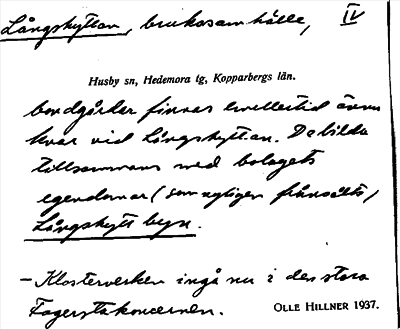 Långshyttan, brukssamhälle, IV
Husby sn, Hedemora tg, Kopparbergs län.
bondgårdar finnas emellertid ännu
kvar vid Långshyttan. De bilda
tillsammans med bolagets
egendomar (som nyligen frånsålts)
Långshytte byn.
- Klosterverken ingå nu i den stora
Fagerstakoncernen. OLLE HILLNER 1937.